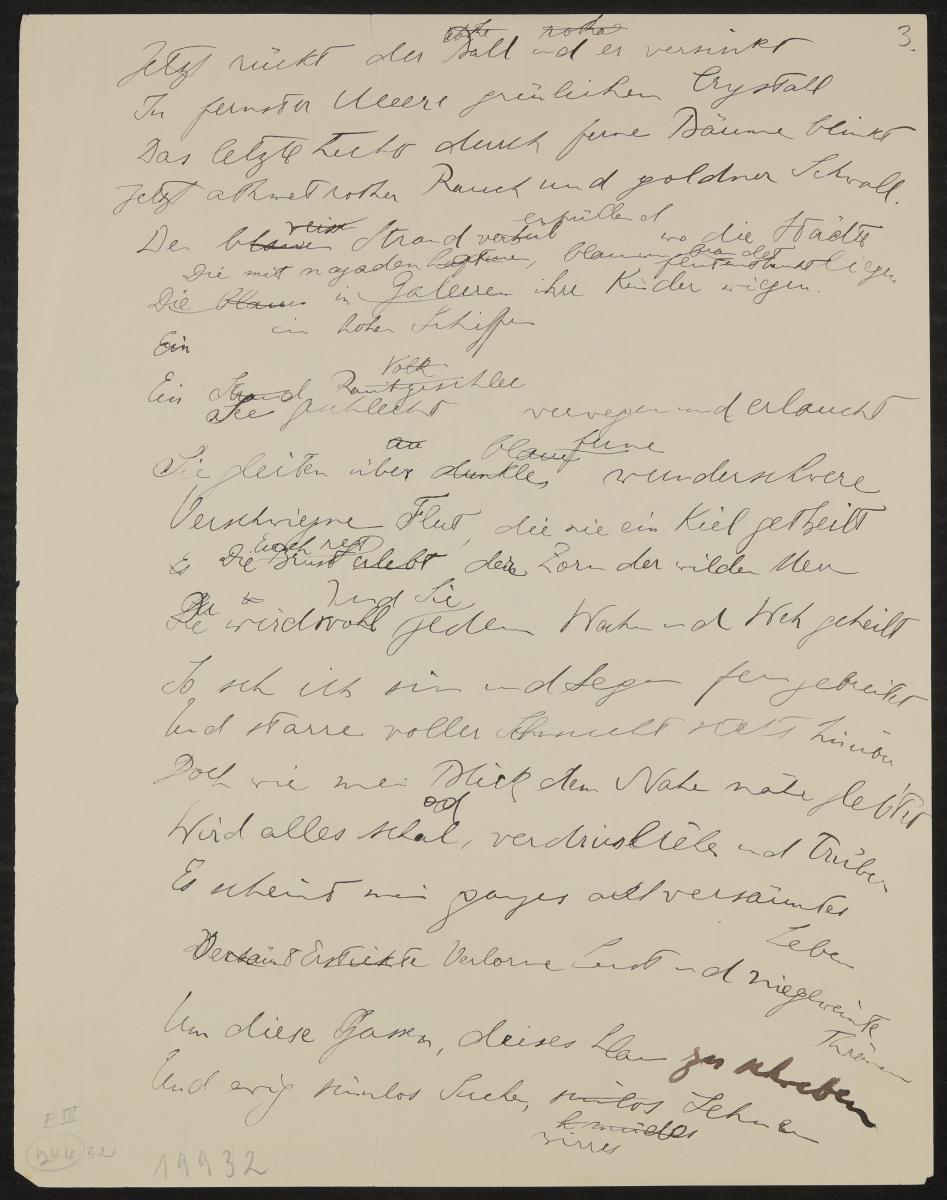 3.
rothe rothe
Jetzt rückt der Ball und er versinkt
In fernster Meere grünlichem Crystall
Das letzte Echo durch ferne Bäume blinkt
Jetzt athmet rother Rauch und goldner Schwall.
weiss erfüllend
Den blauen Strand verhüllt wo die Städte liegen
Die mit najaden blauen
Die blauen in Galeeren ihre Kinder wiegen.
in hohen Schiffen
Ein
Volk
Ein Strand
geschlecht verwegen und erlaucht
an blaue ferne
Sie gleiten über dunkle, wunderschwere
Verschwiegne Flut, die nie ein Kiel getheilt
Es Die Brust erlebt den Zorn der wilden Meere
Und Sie
wird wohl jedem Wahn und Weh geheilt
So seh ich sie und Segen fern gebreitet
Und starre voller Sehnsucht stets hinüber
Doch wie mein Blick dem Nahe näher gleitet
öd
Wird alles schal, verdriesslicher und trüber
Es scheint mein ganzes versäumtes
Leben
Versäumt Erstickte Verlorne Lust und niegeweinte
Thränen
Um diese Gassen, dieses Haus zu schweben
Und ewig sinnlos Suchen, sinnlos Sehnen
wirres
E III
244 32
19932